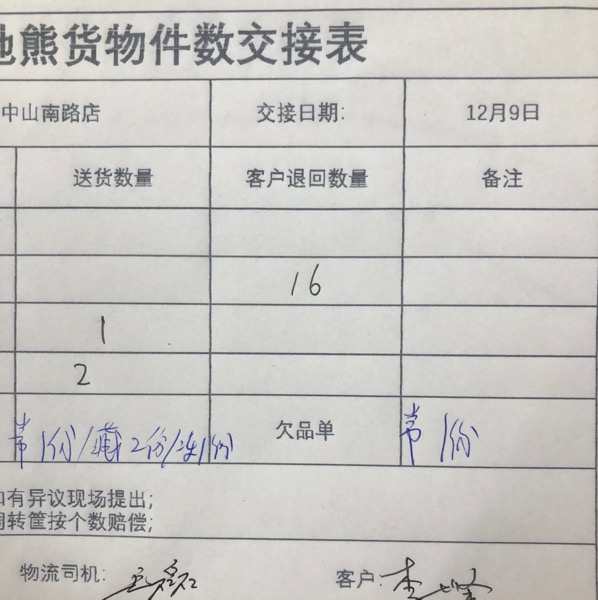 地熊货物件数交接表
中山南路店 交接日期: 12月9日
送货数量 客户退回数量 备注
16
1
2
常1份/藏2份/冻1份 欠品单 常1份
如有异议现场提出;
周转筐按个数赔偿;
物流司机: 客户:李